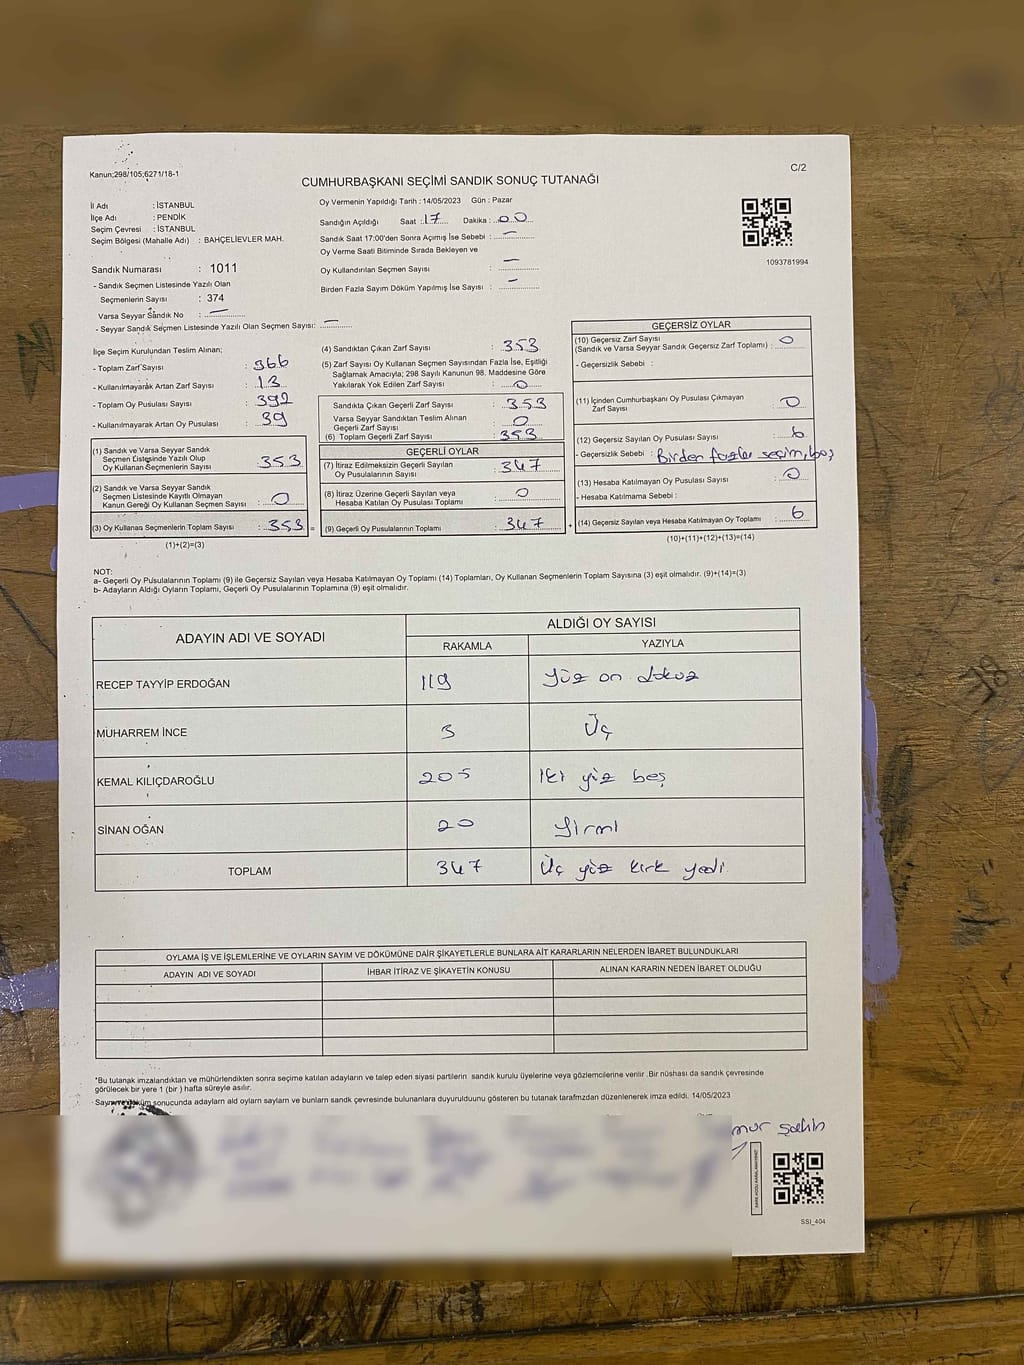 Kanun;298/105;6271/18-1
C/2
CUMHURBAŞKANI SEÇİMİ SANDIK SONUÇ TUTANAĞI
İl Adı : İSTANBUL
İlçe Adı : PENDİK
Seçim Çevresi : İSTANBUL
Seçim Bölgesi (Mahalle Adı) : BAHÇELİEVLER MAH.
Sandık Numarası : 1011
- Sandık Seçmen Listesinde Yazılı Olan
Seçmenlerin Sayısı : 374
Varsa Seyyar Sandık No : —
- Seyyar Sandık Seçmen Listesinde Yazılı Olan Seçmen Sayısı: —
Oy Vermenin Yapıldığı Tarih : 14/05/2023 Gün : Pazar
Sandığın Açıldığı Saat : 17 Dakika : 00
Sandık Saat 17:00'den Sonra Açımış İse Sebebi : —
Oy Verme Saati Bitiminde Sırada Bekleyen ve
Oy Kullandırılan Seçmen Sayısı : —
Birden Fazla Sayım Döküm Yapılmış İse Sayısı : —
1093781994
İlçe Seçim Kurulundan Teslim Alınan;
- Toplam Zarf Sayısı : 366
- Kullanılmayarak Artan Zarf Sayısı : 13
- Toplam Oy Pusulası Sayısı : 392
- Kullanılmayarak Artan Oy Pusulası : 39
(1) Sandık ve Varsa Seyyar Sandık
Seçmen Listesinde Yazılı Olup
Oy Kullanan Seçmenlerin Sayısı : 353
(2) Sandık ve Varsa Seyyar Sandık
Seçmen Listesinde Kayıtlı Olmayan
Kanun Gereği Oy Kullanan Seçmen Sayısı : 0
(3) Oy Kullanan Seçmenlerin Toplam Sayısı : 353 =
(1)+(2)=(3)
(4) Sandıktan Çıkan Zarf Sayısı : 353
(5) Zarf Sayısı Oy Kullanan Seçmen Sayısından Fazla İse, Eşitliği
Sağlamak Amacıyla; 298 Sayılı Kanunun 98. Maddesine Göre
Yakılarak Yok Edilen Zarf Sayısı : 0
Sandıkta Çıkan Geçerli Zarf Sayısı : 353
Varsa Seyyar Sandıktan Teslim Alınan
Geçerli Zarf Sayısı : 0
(6) Toplam Geçerli Zarf Sayısı : 353
GEÇERLİ OYLAR
(7) İtiraz Edilmeksizin Geçerli Sayılan
Oy Pusulalarının Sayısı : 347
(8) İtiraz Üzerine Geçerli Sayılan veya
Hesaba Katılan Oy Pusulası Toplamı : 0
(9) Geçerli Oy Pusulalarının Toplamı : 347 +
GEÇERSİZ OYLAR
(10) Geçersiz Zarf Sayısı
(Sandık ve Varsa Seyyar Sandık Geçersiz Zarf Toplamı) : 0
- Geçersizlik Sebebi :
(11) İçinden Cumhurbaşkanı Oy Pusulası Çıkmayan
Zarf Sayısı : 0
(12) Geçersiz Sayılan Oy Pusulası Sayısı : 6
- Geçersizlik Sebebi : Birden fazla seçim, boş
(13) Hesaba Katılmayan Oy Pusulası Sayısı : 0
- Hesaba Katılmama Sebebi :
(14) Geçersiz Sayılan veya Hesaba Katılmayan Oy Toplamı : 6
(10)+(11)+(12)+(13)=(14)
NOT:
a- Geçerli Oy Pusulalarının Toplamı (9) ile Geçersiz Sayılan veya Hesaba Katılmayan Oy Toplamı (14) Toplamları, Oy Kullanan Seçmenlerin Toplam Sayısına (3) eşit olmalıdır. (9)+(14)=(3)
b- Adayların Aldığı Oyların Toplamı, Geçerli Oy Pusulalarının Toplamına (9) eşit olmalıdır.
ADAYIN ADI VE SOYADI
ALDIĞI OY SAYISI
RAKAMLA YAZIYLA
RECEP TAYYİP ERDOĞAN 119 Yüz on dokuz
MUHARREM İNCE 3 Üç
KEMAL KILIÇDAROĞLU 205 İki yüz beş
SİNAN OĞAN 20 Yirmi
TOPLAM 347 Üç yüz kırk yedi
OYLAMA İŞ VE İŞLEMLERİNE VE OYLARIN SAYIM VE DÖKÜMÜNE DAİR ŞİKAYETLERLE BUNLARA AİT KARARLARIN NELERDEN İBARET BULUNDUKLARI
ADAYIN ADI VE SOYADI İHBAR İTİRAZ VE ŞİKAYETİN KONUSU ALINAN KARARIN NEDEN İBARET OLDUĞU
*Bu tutanak imzalandıktan ve mühürlendikten sonra seçime katılan adayların ve talep eden siyasi partilerin sandık kurulu üyelerine veya gözlemcilerine verilir .Bir nüshası da sandık çevresinde
görülecek bir yere 1 (bir ) hafta süreyle asılır.
sonucunda adayların ald oyların sayların ve bunların sandk çevresinde bulunanlara duyurulduunu gösteren bu tutanak tarafmzdan düzenlenerek imza edildi. 14/05/2023
nur Şahin
SSI_404